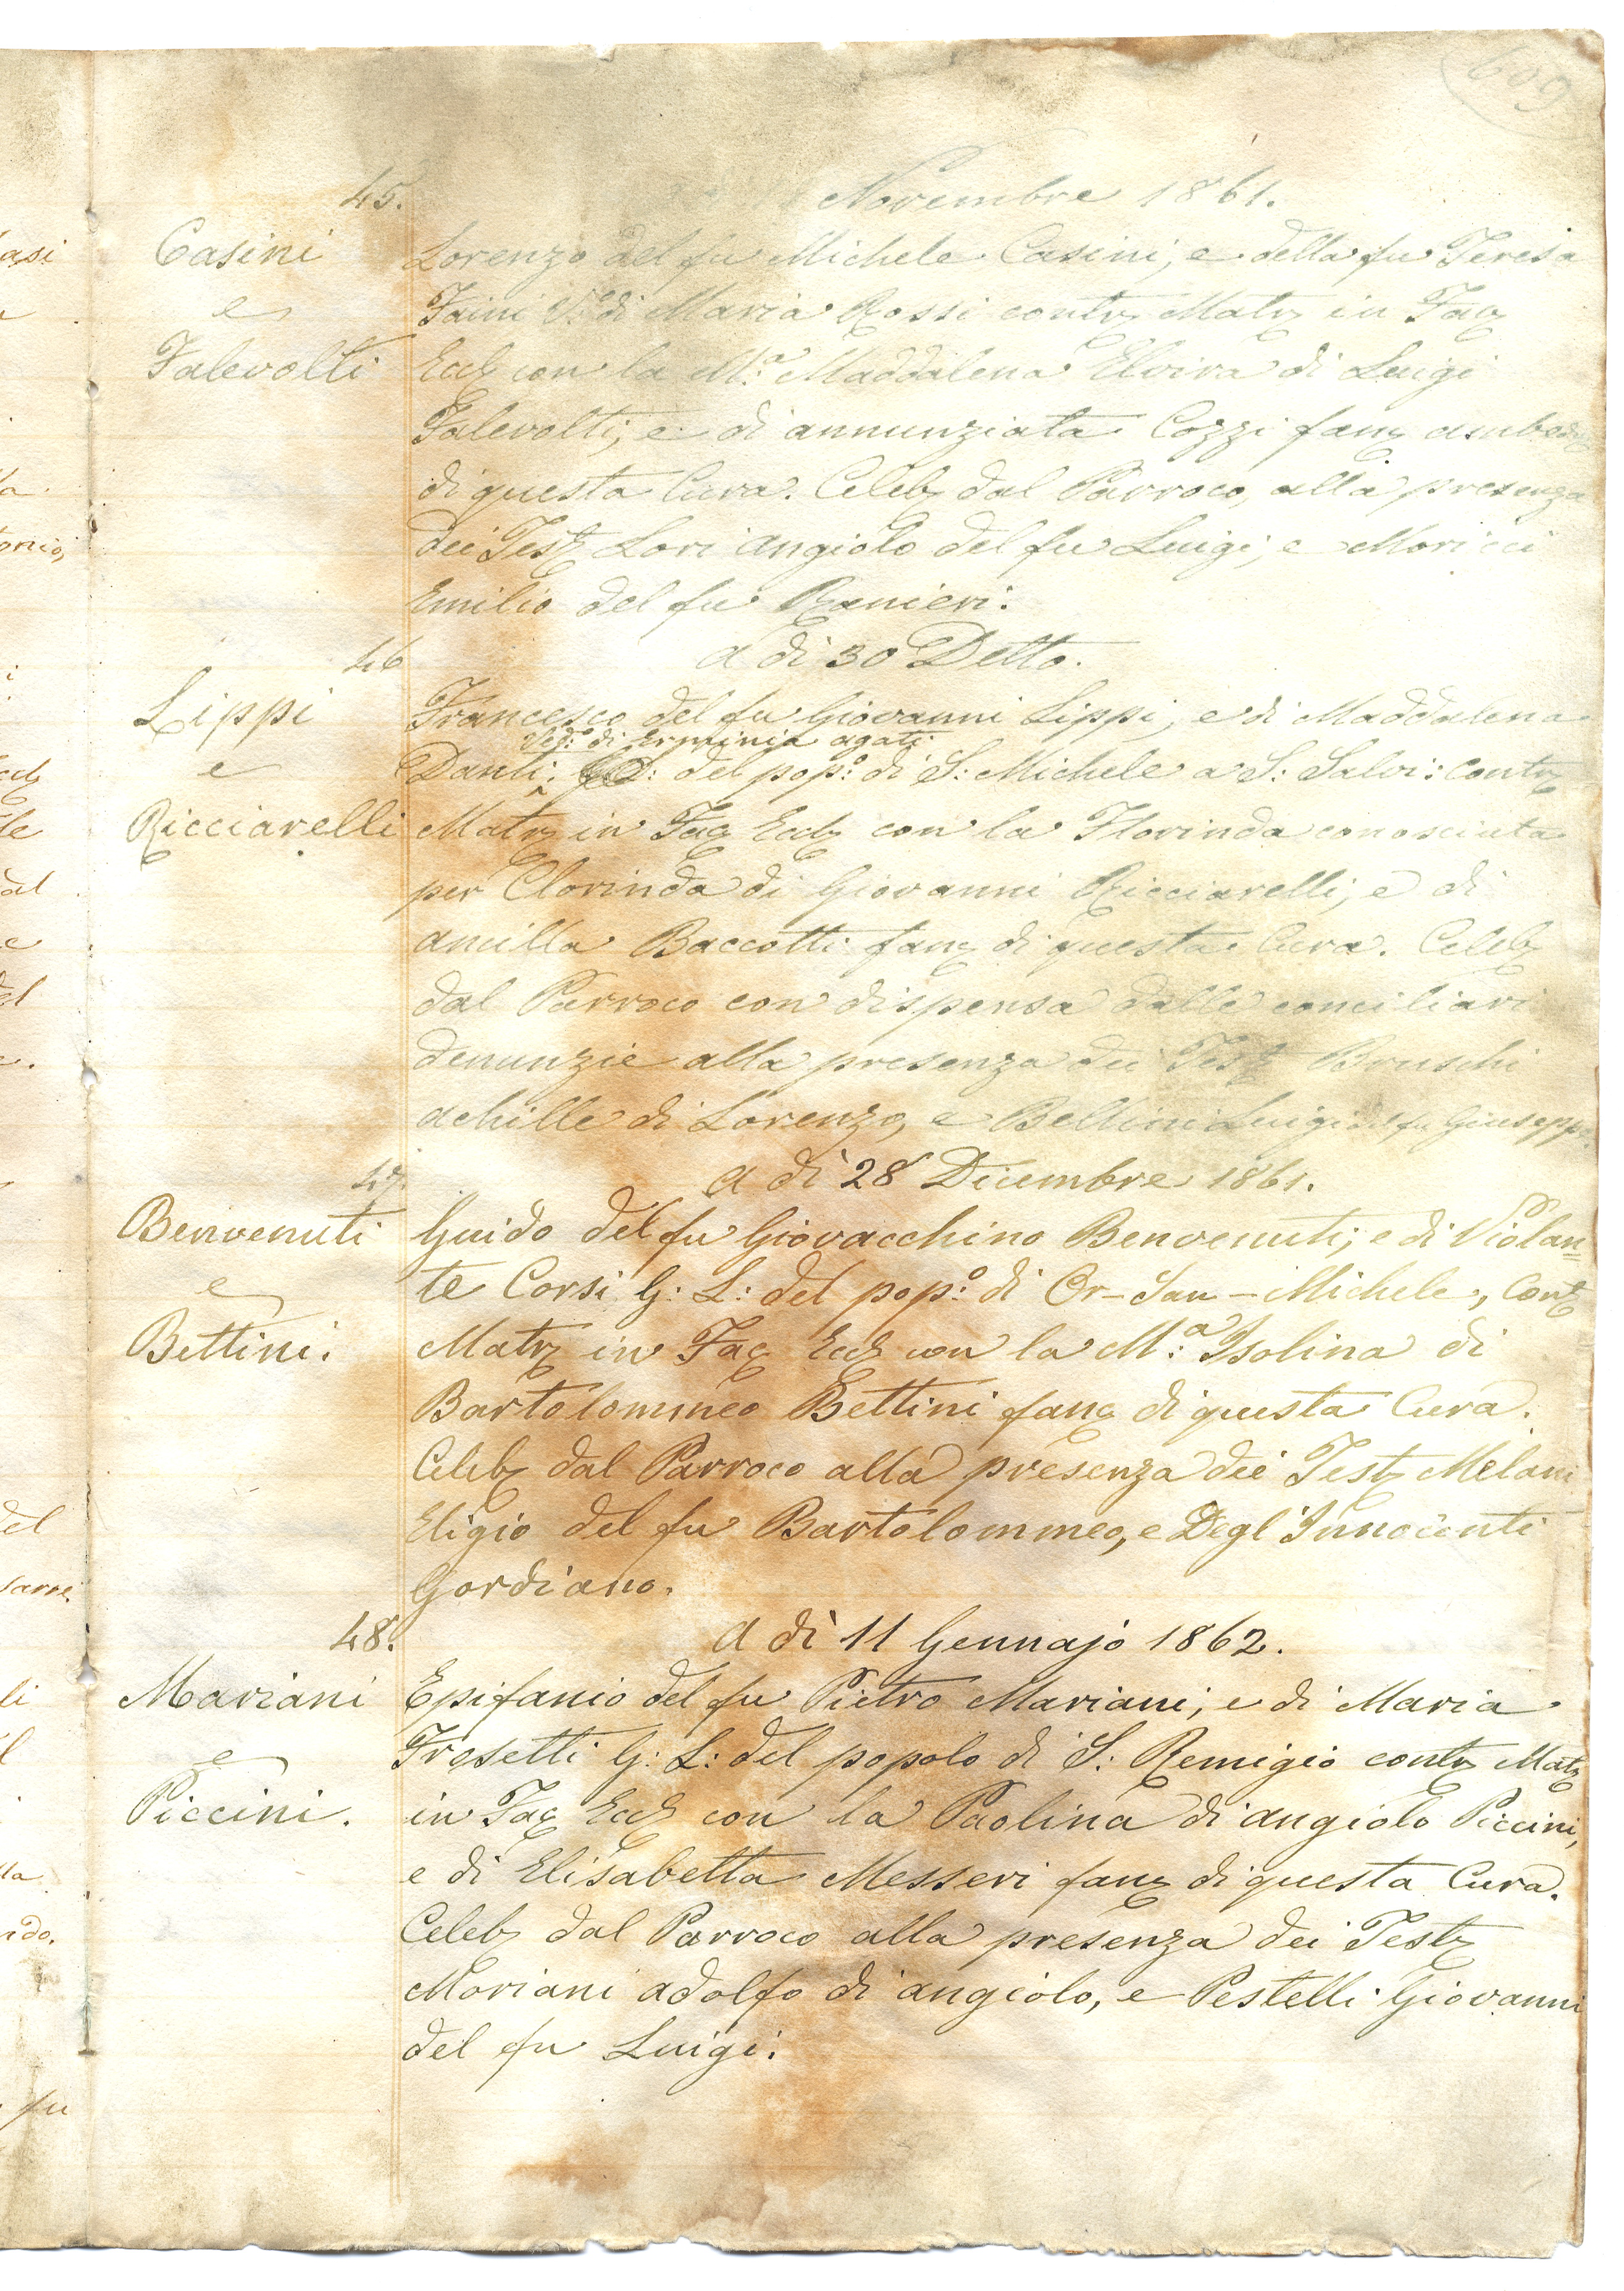 609
45.
Novembre 1861.
Casini
e
Falevolti
Lorenzo del fu Michele Casini, e della fu Teresa
Faini V.º di Maria Rossi contr Matr in Fac
Eccl con la M.ª Maddalena Elvira di Luigi
Falevolti, e di annunziata Cozzi fanc ambedue
di questa Cura. Celeb dal Parroco, alla presenza
dei Test Lori Angiolo del fu Luigi, e Moricci
Emilio del fu Ranieri.
46
a di 30 Detto.
Lippi
e
Ricciarelli
Francesco del fu Giovanni Lippi, e di Maddalena
Ved.º di Erminia agati
Danti: del pop.º di S: Michele a S: Salvi: contr
Matr in Fac Eccl con la Florinda conosciuta
per Clorinda di Giovanni Ricciarelli, e di
ancilla Baccotti fanc di questa Cura. Celeb
dal Parroco con dispensa dalle conciliari
denunzie alla presenza dei Test Bruschi
achille di Lorenzo, e Bellini Luigi del fu Giuseppe
47.
A dì 28 Dicembre 1861.
Benvenuti
e
Bettini.
Guido del fu Giovacchino Benvenuti, e di Violan=
te Corsi G: L: del pop.º di Or-San-Michele, Cont
Matr in Fac Eccl con la M.ª Isolina di
Bartolommeo Bettini fanc di questa Cura.
Celeb dal Parroco alla presenza dei Test Melani
Eligio del fu Bartolommeo, e Degl'Innocenti
Gordiano.
48.
A dì 11 Gennajo 1862.
Mariani
e
Piccini.
Epifanio del fu Pietro Mariani, e di Maria
Frosetti G: L: del popolo di S: Remigio contr Matr
in Fac Eccl con la Paolina di angiolo Piccini,
e di Elisabetta Messeri fanc di questa Cura.
Celeb dal Parroco alla presenza dei Test
Moriani adolfo di angiolo, e Pestelli Giovanni
del fu Luigi.